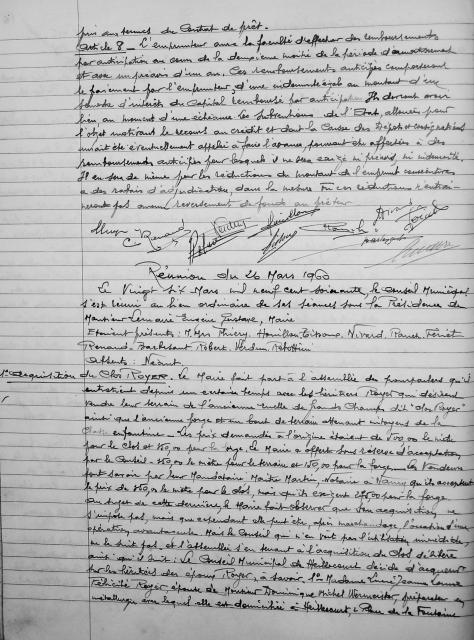 pris aux termes du Contrat de prêt.
Article 8 _ L'emprunteur aura la faculté d'effectuer des remboursements
par anticipation au cours de la deuxième moitié de la période d'amortissement
et avec un préavis d'un an. Ces remboursements anticipés comporteront
le paiement par l'emprunteur, d'une indemnité égale au montant d'un
d'intérêts du Capital remboursé par anticipation. Ils devront avoir
lieu au moment d'une échéance. Les subventions de l'Etat, allouées pour
l'objet motivant le recours au crédit et dont la Caisse des Dépôts et consignations
aurait été éventuellement appelée à faire l'avance, pourront être affectées à des
remboursements anticipés pour lesquels il ne sera exigé ni préavis, ni indemnité.
Il en sera de même pour les réductions du montant de l'emprunt consécutives
à des rabais d'adjudication, dans la mesure où ces réductions
pas aucun reversement de fonds au prêteur
Réunion du 26 Mars 1960
Le Vingt Six Mars mil neuf cent soixante, le Conseil Municipal
s'est réuni au lieu ordinaire de ses séances sous la Présidence de
Monsieur Eugène Gustave, Maire
Etaient présents : M.Mrs Thiery, Nivard,
Renaud, Robert, Verdun
Absents : Néant
1° acquisition du Clos Royer. Le Maire fait part à l'assemblée des pourparlers qu'il
entretient depuis un certain temps avec les héritiers Royer qui désirent
vendre leur terrain de l'ancienne ruelle des grands Champs dit "Clos Royer"
ainsi que l'ancienne forge et un bout de terrain attenant mitoyen de la
enfantine _ Les prix demandés à l'origine étaient de le mètre
pour le Clos et pour la forge. Le Maire a offert sous réserve d'acceptation
par le Conseil le mètre pour le terrain et pour la forge _ Les Vendeurs
font savoir par leur Mandataire Maître Martin, Notaire à Nancy qu'ils acceptent
le prix de le mètre pour le clos, mais qu'ils exigent pour la forge
Au sujet de cette dernière, le Maire fait observer que son acquisition ne
s'impose pas, mais que cependant elle peut être, après marchandage, l'occasion d'une
opération avantageuse. Mais le Conseil qui n'en voit pas l'utilité immédiate,
ne la suit pas, et l'assemblée s'en tenant à l'acquisition du Clos délibère
ainsi qu'il suit : Le Conseil Municipal de Heillecourt décide d'acquérir
sur les héritiers des époux Royer, à savoir, 1° Madame Jeanne
Félicité Royer, épouse de Monsieur Dominique Michel
métallurgie avec lequel elle est domiciliée à Heillecourt, Rue de la Fontaine